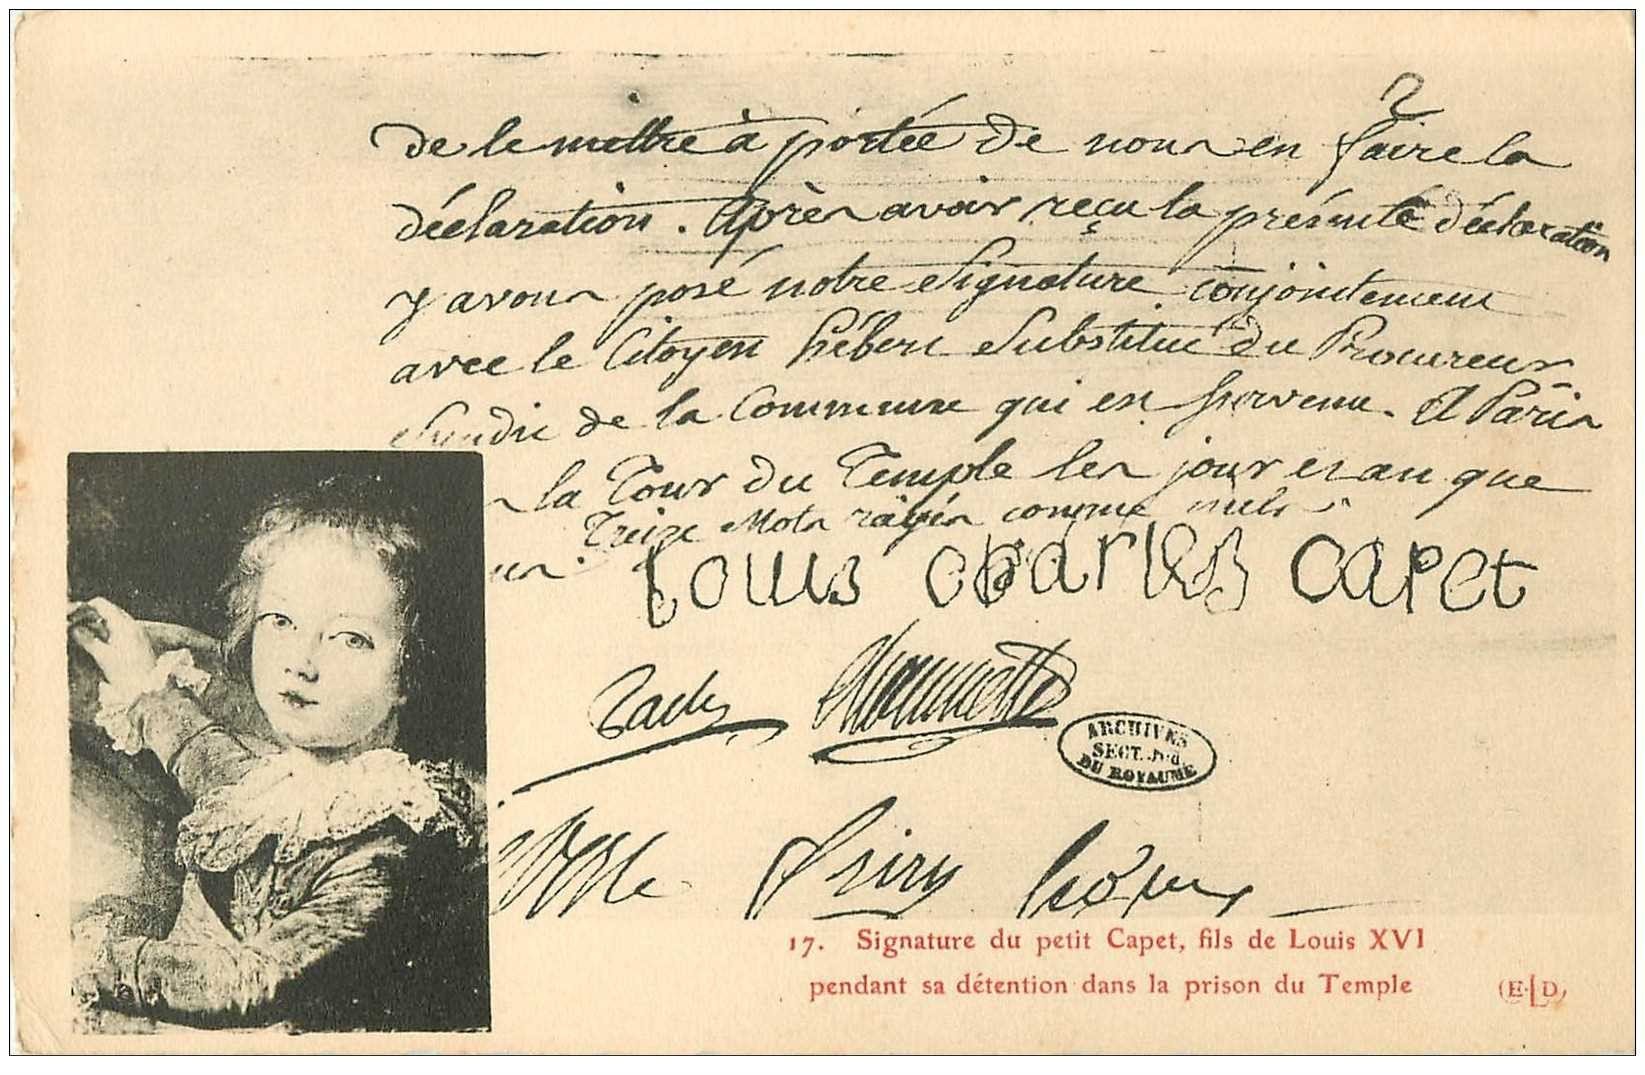 2
de le mettre à portée de nous en faire la
déclaration. Après avoir reçu la présente déclaration
y avons posé notre Signature conjointement
avec le Citoyen hébert Substitut du Procureur
Sindic de la Commune qui est survenu. A Paris
la Tour du Temple les jour et an que
Treize Mots rayés comme nuls
louis charles capet
Chaumette
ARCHIVES
SECT. Jud.
DU ROYAUME
17. Signature du petit Capet, fils de Louis XVI
pendant sa détention dans la prison du Temple
E.L.D.